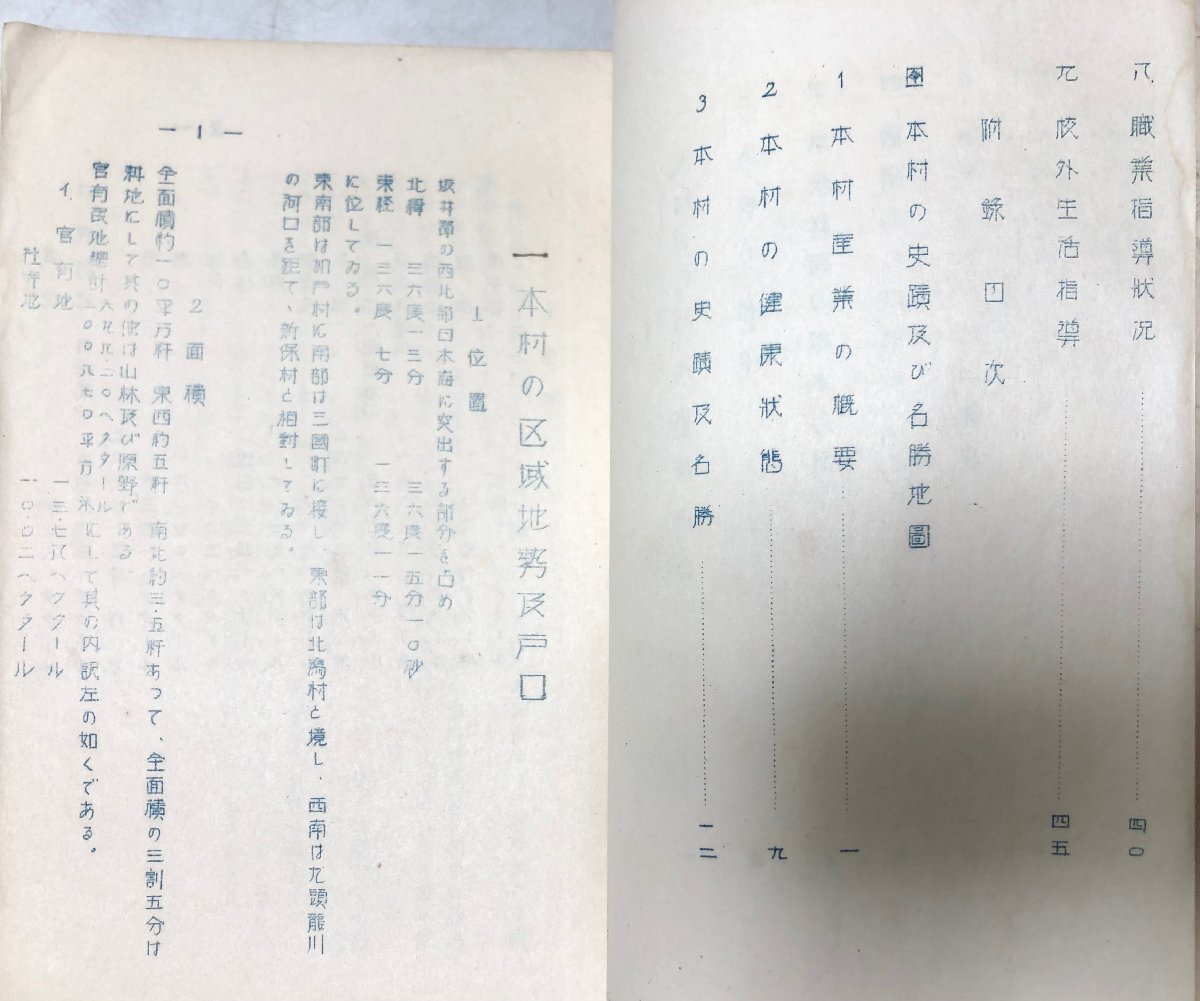 八、職業指導狀況 四〇
九校外生活指導 四五
附錄目次
本村の史蹟及び名勝地圖
1本村産業の概要 一
2本村の健康狀態 九
3本村の史蹟及名勝 一二
一本村の区域地勢及戸口
1位置
坂井郡の西北部日本海に突出する部分を占め
北緯 三六度一三分 三六度一五分一〇秒
東経 一三六度七分 一三六度一一分
に位してゐる。
東南部は加戸村に南部は三國町に接し 東部は北潟村と境し、西南は九頭龍川
の河口を距て、新保村と相對してゐる。
2面積
全面積約一〇平方粁 東西約五粁 南北約三・五粁あつて、全面積の三割五分は
耕地にして其の他は山林及び原野である。
官有民地總計 六九九・二〇ヘクタール
二〇〇八七〇平方米にして其の内訳左の如くである。
イ、官有地 一三・七八ヘクタール
社寺地 一・〇〇二ヘクタール
一1一